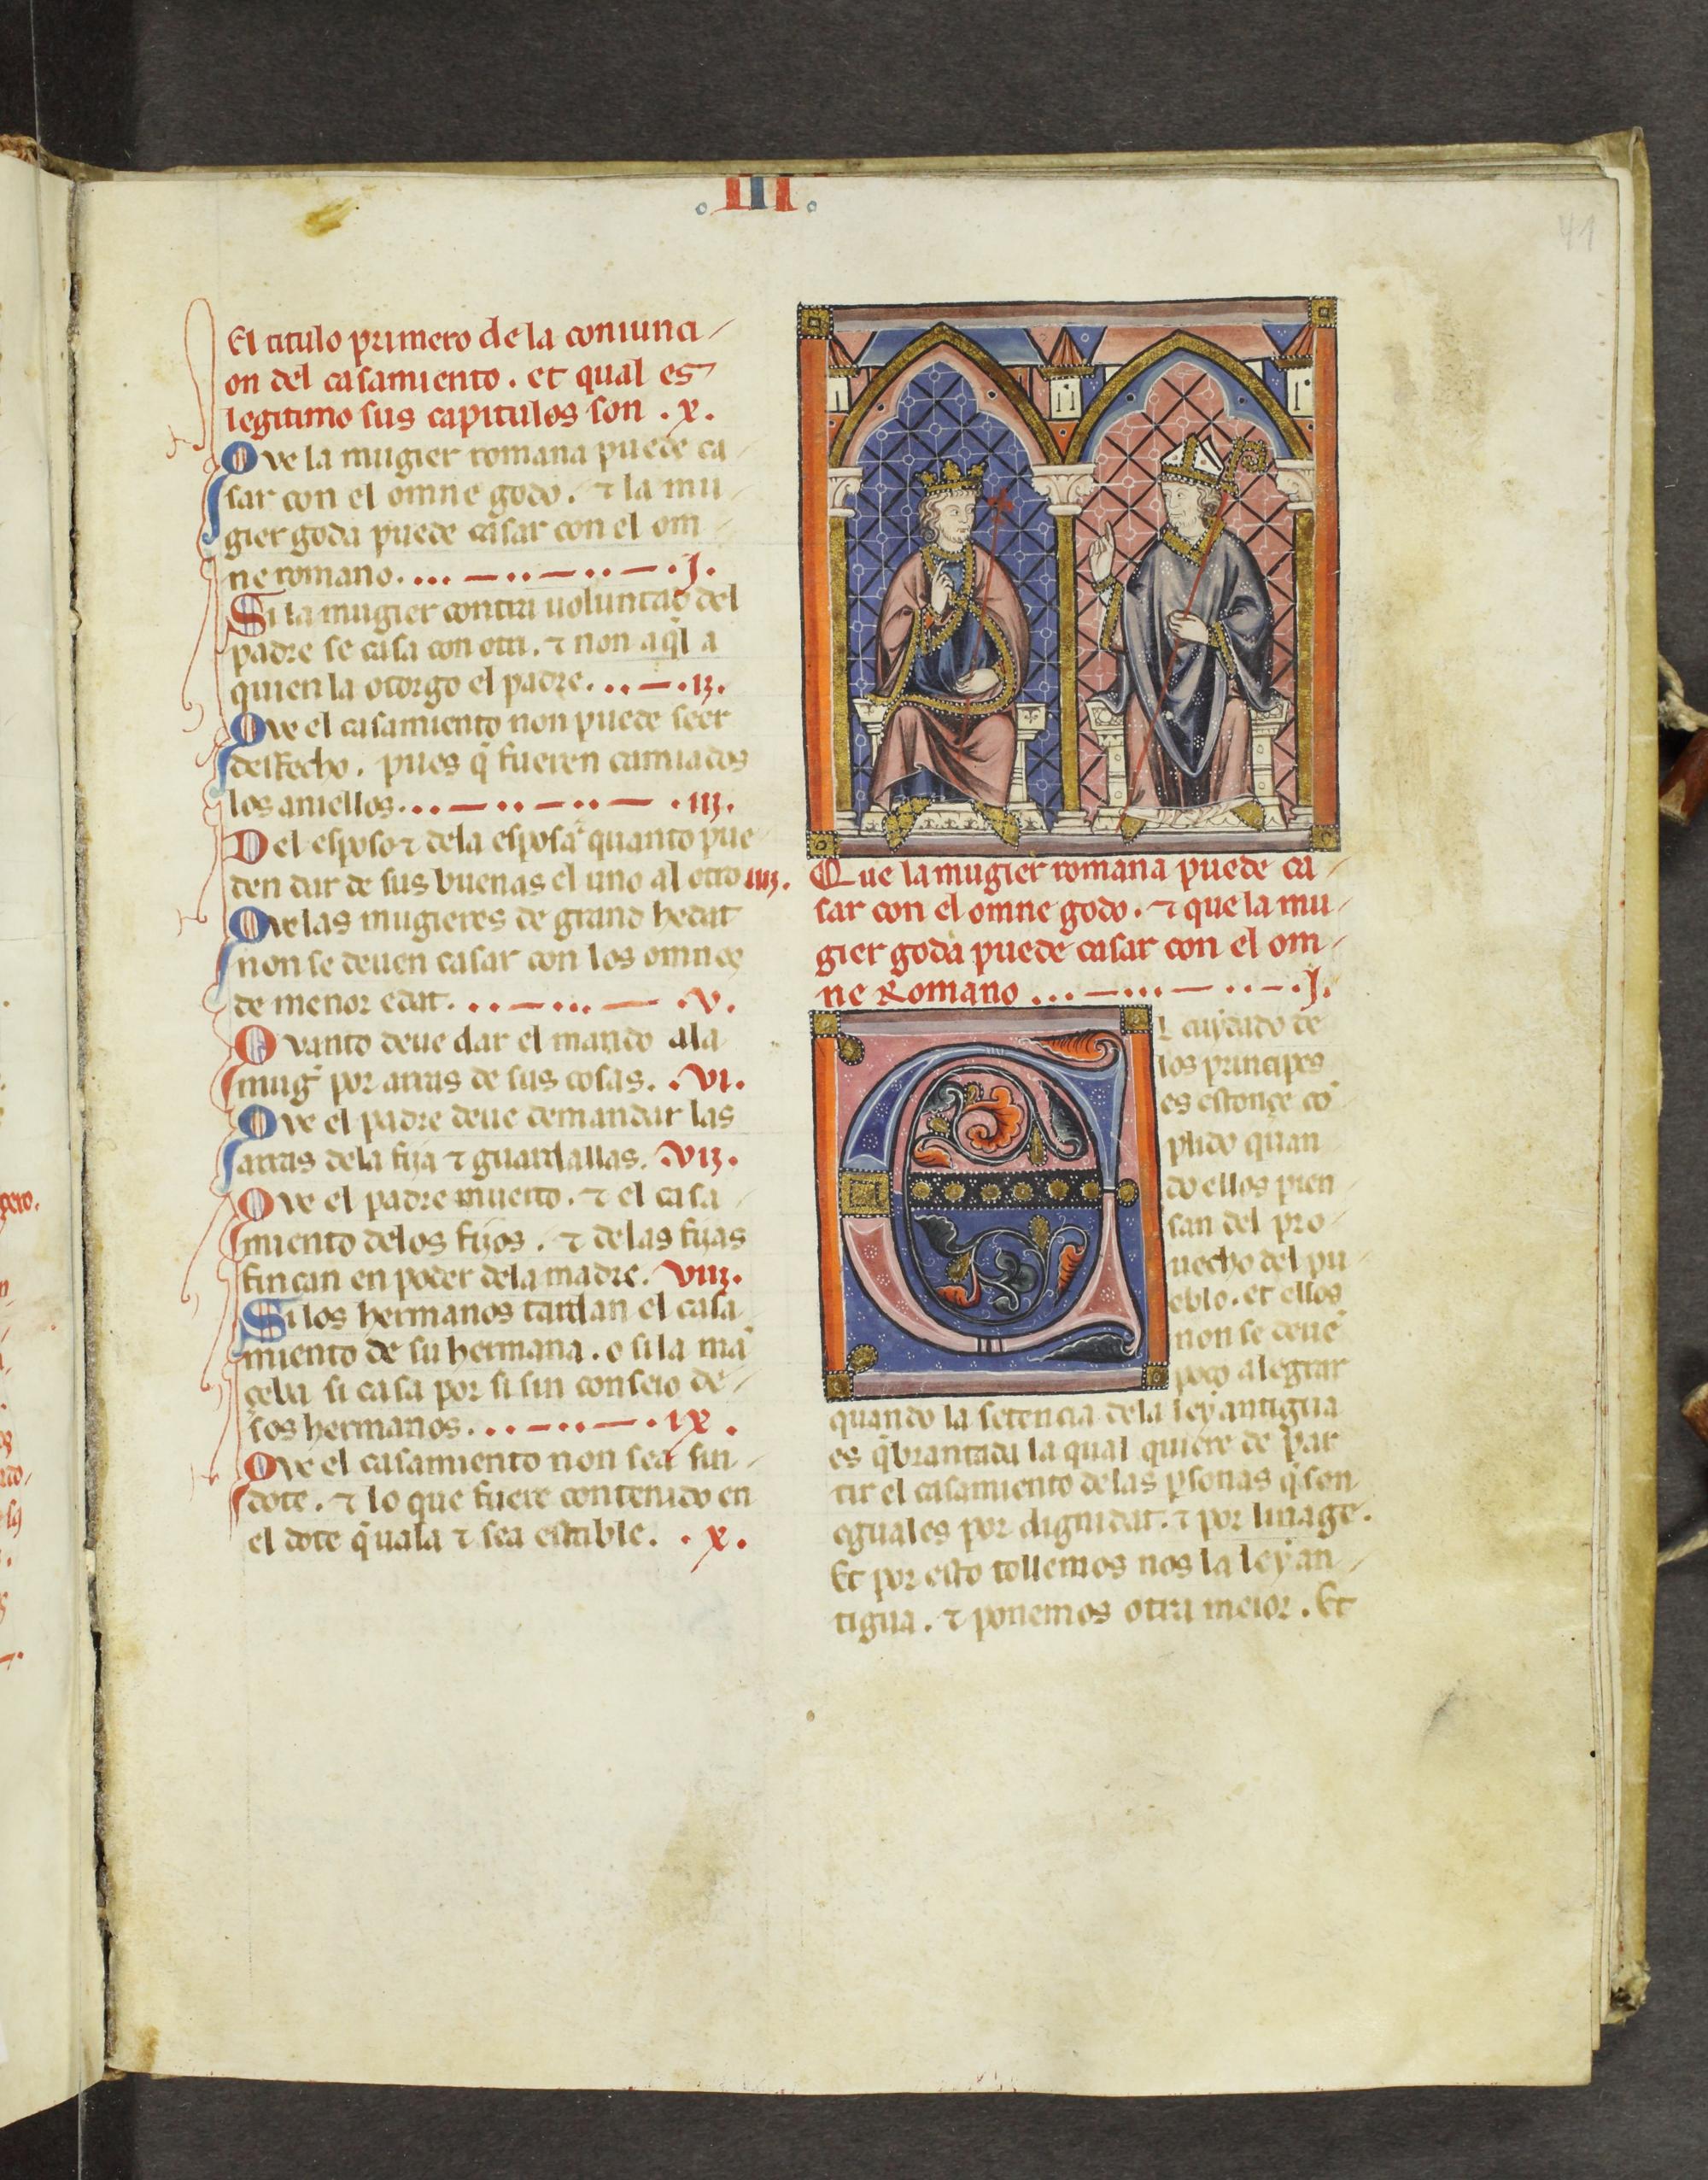 III
41
El titulo primero de la coniunci-
on del casamiento. et qual es
legitimo sus capitulos son .x.
Que la mugier romana puede ca-
sar con el omne godo. ⁊ la mu-
gier goda puede casar con el om-
ne romano. .I.
Si la mugier contra uoluntad del
padre se casa con otri. ⁊ non aq̃l a
quien la otorgo el padre. .II.
Que el casamiento non puede seer
desfecho. pues q̃ fueren camiados
los aniellos. .III.
Del esposo ⁊ dela esposa quanto pue
den dar de sus buenas el uno al otro IIII.
Que las mugieres de grand hedat
non se deuen casar con los omnes
de menor edat. .V.
Quanto deue dar el marido ala
mug̃ por arras de sus cosas. .VI.
Que el padre deue demandar las
arras dela fija ⁊ guardallas. .VII.
Que el padre muerto. ⁊ el casa
miento delos fijos. ⁊ delas fijas
fincan en poder dela madre. VIII.
Si los hermanos tardan el casa
miento de su hermana. o si la mã
çeba si casa por si sin conseio de-
sos hermanos. .IX.
Que el casamiento non sea sin-
dote. ⁊ lo que fuere contenido en
el dote q̃ uala ⁊ sea estable. .X.
Que la mugier romana puede ca-
sar con el omne godo. ⁊ que la mu-
gier goda puede casar con el om-
ne Romano .I.
El cuydado de
los principes
es estonçe cõ
plido quan
do ellos pien
san del pro-
uecho del pu-
eblo. et ellos
non se deuẽ
poco alegrar
quando la setencia dela ley antigua
es q̃brantada la qual quiere de par
tir el casamiento de las p̱sonas q̃ son
eguales por dignidat. ⁊ por linage.
Et por esto tollemos nos la ley an-
tigua. ⁊ ponemos otra meior. Et